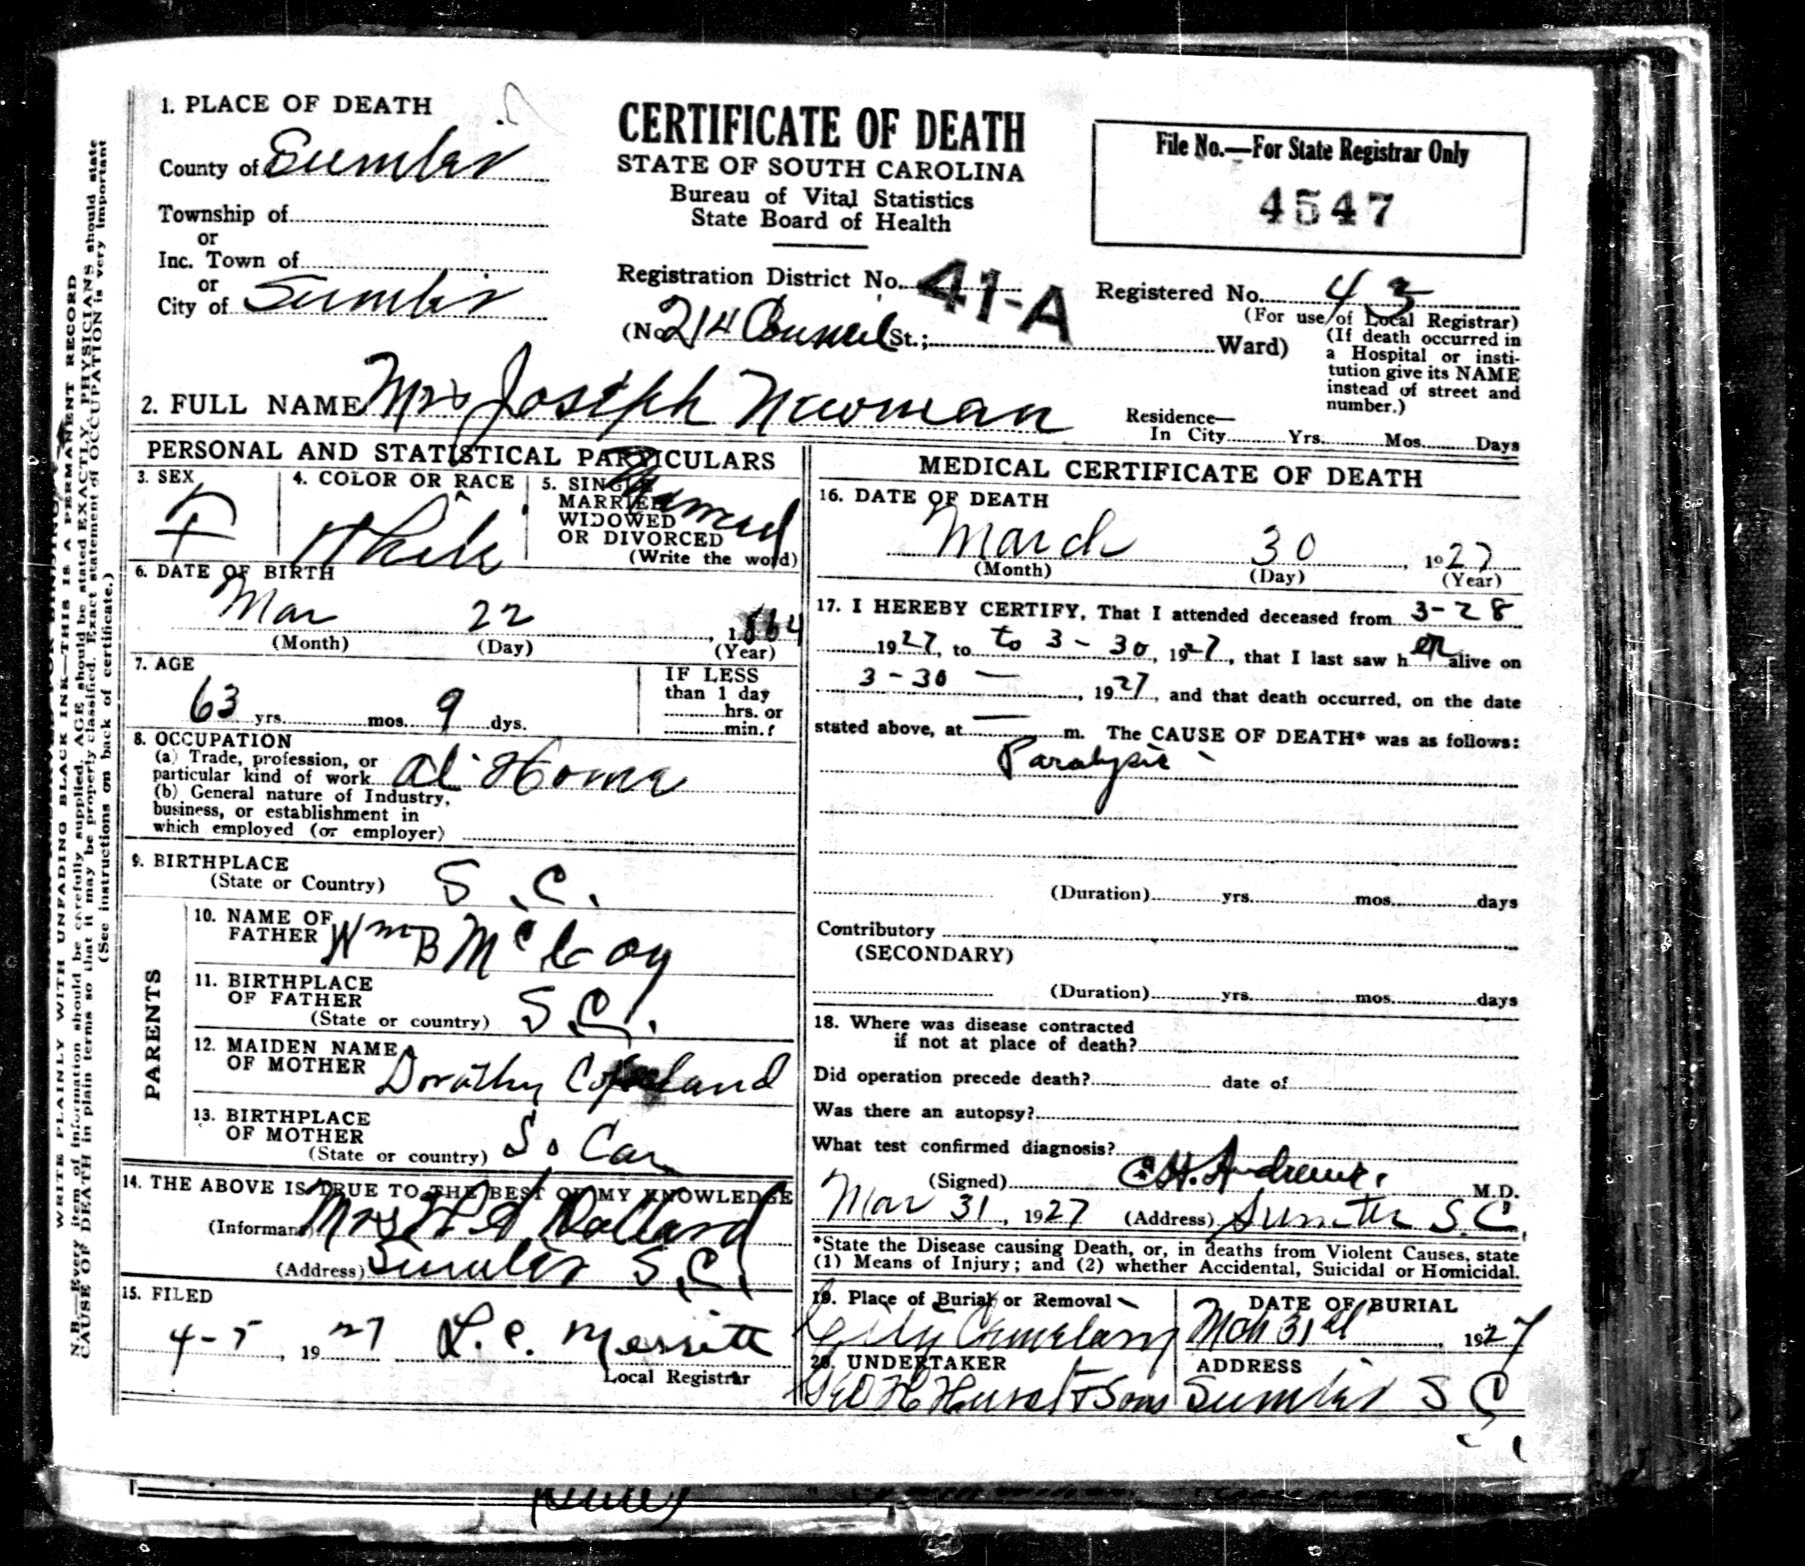 1. PLACE OF DEATH
County of Sumter
Township of
or
Inc. Town of
or
City of Sumter
CERTIFICATE OF DEATH
STATE OF SOUTH CAROLINA
Bureau of Vital Statistics
State Board of Health
Registration District No. 41-A
(No. 214 Council St.; Ward)
File No.—For State Registrar Only
4547
Registered No. 43
(For use of Local Registrar)
(If death occurred in
a Hospital or insti-
tution give its NAME
instead of street and
number.)
2. FULL NAME Mrs Joseph Newman
Residence—
In City Yrs. Mos. Days
PERSONAL AND STATISTICAL PARTICULARS
3. SEX
F
4. COLOR OR RACE
White
5. SINGLE
MARRIED
WIDOWED
OR DIVORCED
(Write the word)
Married
6. DATE OF BIRTH
Mar 22, 1864
(Month) (Day) (Year)
7. AGE
63 yrs. mos. 9 dys.
IF LESS
than 1 day
hrs. or
min.?
8. OCCUPATION
(a) Trade, profession, or
particular kind of work At Home
(b) General nature of Industry,
business, or establishment in
which employed (or employer)
9. BIRTHPLACE
(State or Country) S.C.
PARENTS
10. NAME OF
FATHER Wm B McCoy
11. BIRTHPLACE
OF FATHER
(State or country) S.C.
12. MAIDEN NAME
OF MOTHER Dorathy Copeland
13. BIRTHPLACE
OF MOTHER
(State or country) So Car
14. THE ABOVE IS TRUE TO THE BEST OF MY KNOWLEDGE
(Informant) Mrs H A Dollard
(Address) Sumter S.C.
15. FILED
4-5, 1927 L. C. Merritt
Local Registrar
MEDICAL CERTIFICATE OF DEATH
16. DATE OF DEATH
March 30, 1927
(Month) (Day) (Year)
17. I HEREBY CERTIFY, That I attended deceased from 3-28
1927, to to 3-30, 1927, that I last saw her alive on
3-30 —, 1927, and that death occurred, on the date
stated above, at — m. The CAUSE OF DEATH* was as follows:
Paralysis
(Duration) yrs. mos. days
Contributory
(SECONDARY)
(Duration) yrs. mos. days
18. Where was disease contracted
if not at place of death?
Did operation precede death? date of
Was there an autopsy?
What test confirmed diagnosis?
(Signed) C.H. Andrews. M.D.
Mar 31, 1927 (Address) Sumter S.C.
*State the Disease causing Death, or, in deaths from Violent Causes, state
(1) Means of Injury; and (2) whether Accidental, Suicidal or Homicidal.
19. Place of Burial or Removal
City Cemetary
DATE OF BURIAL
Mch 31st 1927
20. UNDERTAKER
Geo H Hurst & Sons
ADDRESS
Sumter S C
WRITE PLAINLY WITH UNFADING BLACK INK—THIS IS A PERMANENT RECORD
N. B.—Every item of information should be carefully supplied. AGE should be stated EXACTLY. PHYSICIANS should state
CAUSE OF DEATH in plain terms so that it may be properly classified. Exact statement of OCCUPATION is very important
(See instructions on back of certificate.)